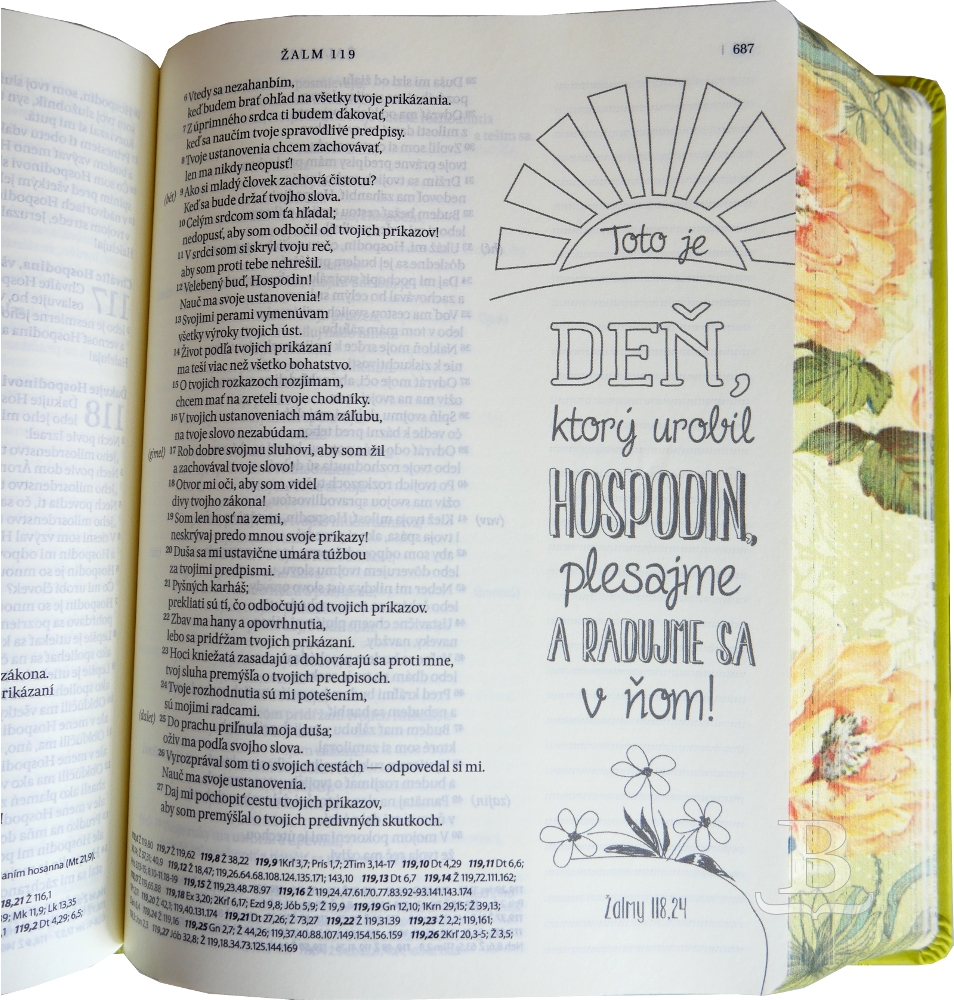 ŽALM 119
687
6 Vtedy sa nezahanbím,
keď budem brať ohľad na všetky tvoje prikázania.
7 Z úprimného srdca ti budem ďakovať,
keď sa naučím tvoje spravodlivé predpisy.
8 Tvoje ustanovenia chcem zachovávať,
len ma nikdy neopusť!
(bét) 9 Ako si mladý človek zachová čistotu?
Keď sa bude držať tvojho slova.
10 Celým srdcom som ťa hľadal;
nedopusť, aby som odbočil od tvojich príkazov!
11 V srdci som si skryl tvoju reč,
aby som proti tebe nehrešil.
12 Velebený buď, Hospodin!
Nauč ma svoje ustanovenia!
13 Svojimi perami vymenúvam
všetky výroky tvojich úst.
14 Život podľa tvojich prikázaní
ma teší viac než všetko bohatstvo.
15 O tvojich rozkazoch rozjímam,
chcem mať na zreteli tvoje chodníky.
16 V tvojich ustanoveniach mám záľubu,
na tvoje slovo nezabúdam.
(gimel) 17 Rob dobre svojmu sluhovi, aby som žil
a zachovával tvoje slovo!
18 Otvor mi oči, aby som videl
divy tvojho zákona!
19 Som len hosť na zemi,
neskrývaj predo mnou svoje príkazy!
20 Duša sa mi ustavične umára túžbou
za tvojimi predpismi.
21 Pyšných karháš;
prekliati sú tí, čo odbočujú od tvojich príkazov.
22 Zbav ma hany a opovrhnutia,
lebo sa pridŕžam tvojich prikázaní.
23 Hoci kniežatá zasadajú a dohovárajú sa proti mne,
tvoj sluha premýšľa o tvojich predpisoch.
24 Tvoje rozhodnutia sú mi potešením,
sú mojimi radcami.
(dalet) 25 Do prachu priľnula moja duša;
oživ ma podľa svojho slova.
26 Vyrozprával som ti o svojich cestách — odpovedal si mi.
Nauč ma svoje ustanovenia.
27 Daj mi pochopiť cestu tvojich príkazov,
aby som premýšľal o tvojich predivných skutkoch.
Ž 119,80 119,7 Ž 119,62 119,8 Ž 38,22 119,9 1Krľ 3,7; Prís 1,7; 2Tim 3,14-17 119,10 Dt 4,29 119,11 Dt 6,6;
Ž 37,31; 40,9 119,12 Ž 18,47; 119,26.64.68.108.124.135.171; 143,10 119,13 Dt 6,7 119,14 Ž 119,72.111.162;
119,15 Ž 119,23.48.78.97 119,16 Ž 119,24.47.61.70.77.83.92-93.141.143.174
119,18 Ex 3,20; 2Krľ 6,17; Ezd 9,8; Jób 5,9; Ž 19,9 119,19 Gn 12,10; 1Krn 29,15; Ž 39,13;
119,20 Ž 42,2; 119,40.131.174 119,21 Dt 27,26; Ž 73,27 119,22 Ž 119,31.39 119,23 Ž 2,2; 119,161;
119,25 Gn 2,7; Ž 44,26; 119,37.40.88.107.149.154.156.159 119,26 2Krľ 20,3-5; Ž 3,5;
119,27 Jób 32,8; Ž 119,18.34.73.125.144.169
Toto je
DEŇ,
ktorý urobil
HOSPODIN,
plesajme
A RADUJME SA
v ňom!
Žalmy 118,24
zákona.
rikázaní
aním hosanna (Mt 21,9).
18,21 Ž 116,1
9; Mk 11,9; Lk 13,35
119,2 Dt 4,29; 6,5;
B